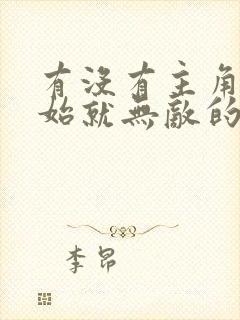 有没有主角
始就無敵的
李昂